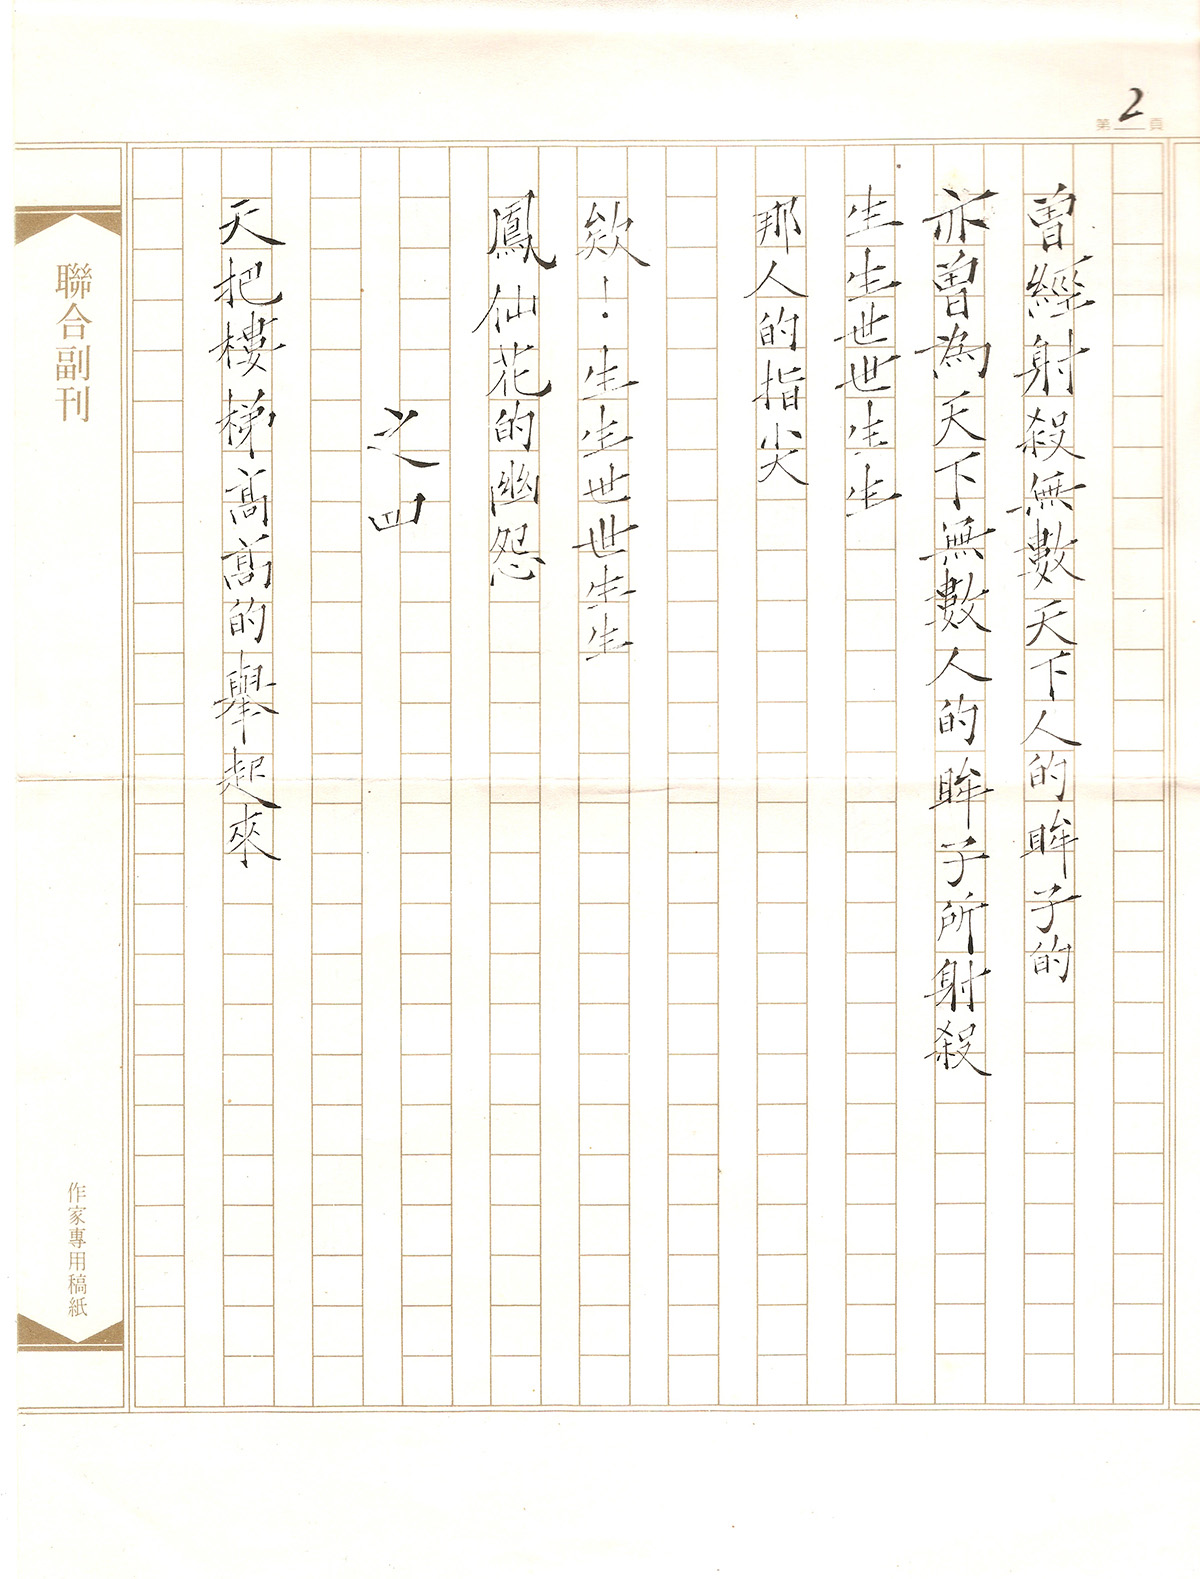 第2頁
曾經射殺無數天下人的眸子的
亦曾為天下無數人的眸子所射殺
生生世世生生
那人的指尖
欸！生生世世生生
鳳仙花的幽怨
之四
天把樓梯高高的舉起來
聯合副刊
作家專用稿紙